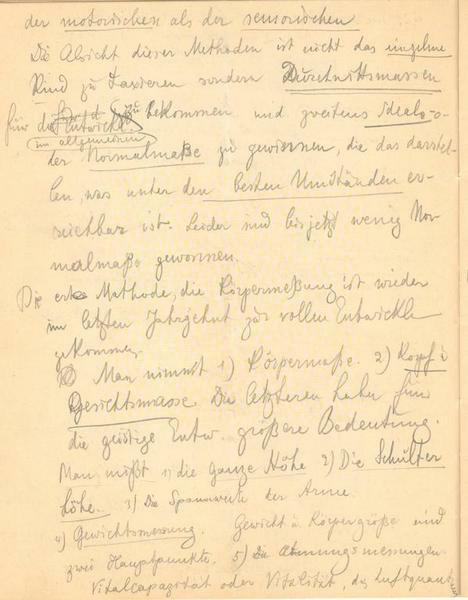 der motorischen als der sensorischen
Die Absicht dieser Methoden ist nicht das einzelne
Kind zu taxieren sondern Durchnittsmassen
für die Entwickl. zu bekommen und zweitens Ideal- o-
im allgemeinen
der Normalmaße zu gewinnen, die das darstel-
len, was unter den besten Umständen er-
reichbar ist. Leider sind bis jetzt wenig Nor-
malmaße gewonnen.
Die erste Methode, die Körpermeßung ist wieder
im letzten Jahrzehnt zur vollen Entwickl
gekommen
Man nimmt 1) Körpermaße. 2) Kopf u
Gesichtsmasse. Die letzteren haben für
die geistige Entw. größere Bedeutung.
Man mißt 1) die ganze Höhe 2) Die Schulter
höhe. 3) Die Spannweite der Arme.
4) Gewichtsmessung. Gewicht u. Körpergröße sind
zwei Hauptpunkte. 5) Die Atmungsmessungen
Vitalcapazität oder Vitalität, des Luftquantums